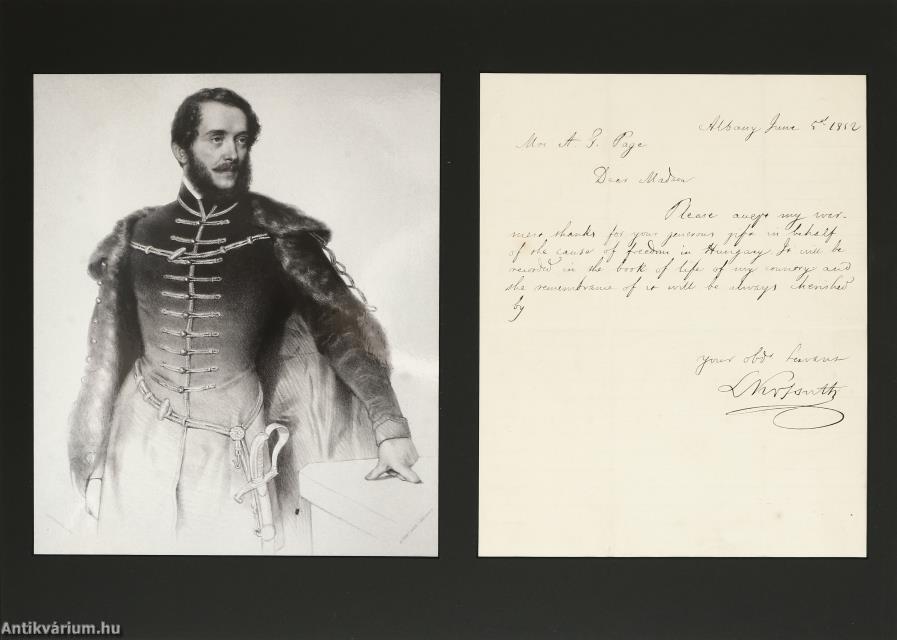 Albany June 5d. 1852
Mrs A. G. Page
Dear Madam
Please accept my war-
mest thanks for your generous gift in behalf
of the cause of freedom in Hungary. It will be
recorded in the book of life of my country and
the remembrance of it will be always cherished
by
your obdt servant
LKossuth
Antikvárium.hu